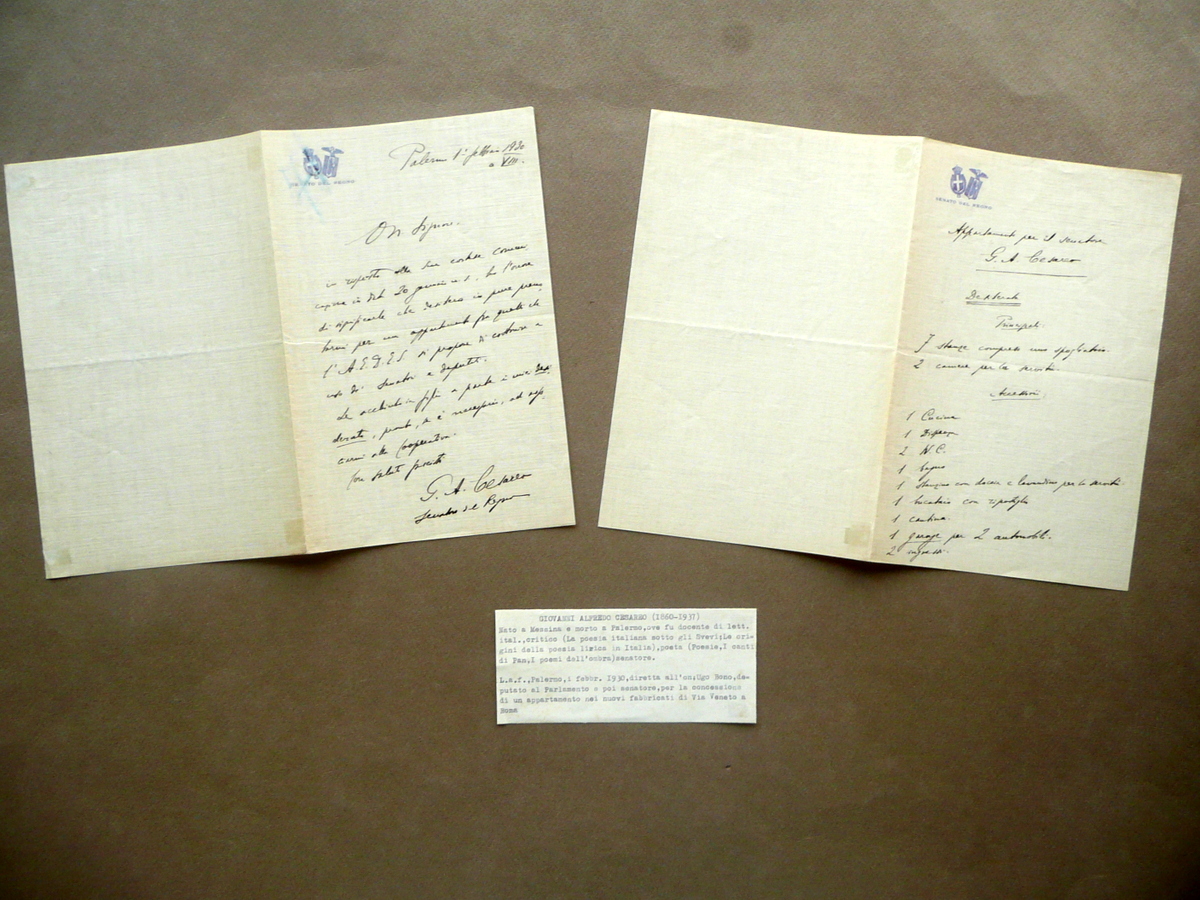 SENATO DEL REGNO
Palermo 1° febbraio 1930
a VIII.
On. Signore.
in risposta alla sua cortese comuni-
cazione in data 30 gennaio u.s. ho l'onore
di significarle che desidero in pure preno
tarmi per un appartamento fra quelli che
l'A.E.D.E.S. si propone di costruire a
uso di Senatori e deputati.
Le acchiudo in foglio a parte i miei desi
derata, pronto, se è necessario, ad asso
ciarmi alla Cooperativa.
Con saluti
G. A. Cesareo
Senatore del Regno
SENATO DEL REGNO
Appartamento per il senatore
G. A. Cesareo
Desiderati
Principali.
7 stanze compreso uno spogliatoio.
2 camere per la servitù.
Accessori.
1 Cucina
1 Dispensa
2 W.C.
1 bagno
1 stanzino con doccia e lavandino per la servitù.
1 bucataio con ripostiglio
1 cantina.
1 garage per 2 automobili.
2 ingressi.
GIOVANNI ALFREDO CESAREO (1860-1937)
Nato a Messina e morto a Palermo,ove fu docente di lett.
ital.,critico (La poesia italiana sotto gli Svevi;Le ori-
gini della poesia lirica in Italia),poeta (Poesie,I canti
di Pan,I poemi dell'ombra)senatore.
L.a.f.,Palermo,i febbr. 1930,diretta all'on.Ugo Bono,de-
putato al Parlamento e poi senatore,per la concessione
di un appartamento nei nuovi fabbricati di Via Veneto a
Roma